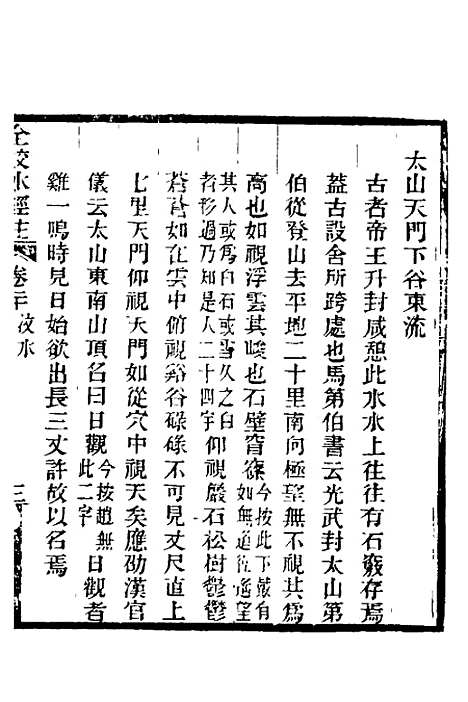 太山天門下谷東流
古者帝王升封咸憩此水水上往往有石竅存焉
蓋古設舍所跨處也馬第伯書云光武封太山第
伯從登山去平地二十里南向極望無不覩其爲
高也如視浮雲其峻也石壁窅窱今按此下嚴有如無道徑遙望
其人或爲白石或雪久之白者移過乃知是人二十四字仰視巖石松樹鬱鬱
蒼蒼如在雲中俯視谿谷碌碌不可見丈尺直上
七里天門仰視天門如從穴中視天矣應劭漢官
儀云太山東南山頂名曰日觀今按趙無此二字日觀者
雞一鳴時見日始欲出長三丈許故以名焉
全校水經注 卷二十 汶水